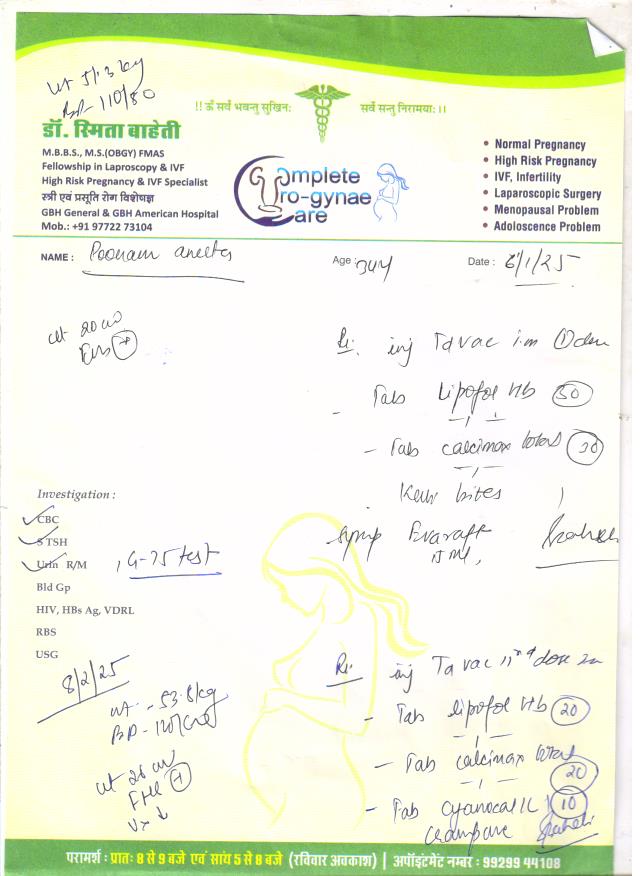 wt 51.3 kg
BP- 110/80
!! ॐ सर्वे भवन्तु सुखिनः सर्वे सन्तु निरामयाः ।।
डॉ. स्मिता बाहेती
M.B.B.S., M.S.(OBGY) FMAS
Fellowship in Laproscopy & IVF
High Risk Pregnancy & IVF Specialist
स्त्री एवं प्रसूति रोग विशेषज्ञ
GBH General & GBH American Hospital
Mob.: +91 97722 73104
Complete
Uro-gynae
Care
• Normal Pregnancy
• High Risk Pregnancy
• IVF, Infertility
• Laparoscopic Surgery
• Menopausal Problem
• Adoloscence Problem
NAME : Poonam Age : 34y Date : 6/1/25
ut 20 w
Rx inj Tavac i.m
- Tab Lipofol Hb 30
- Tab calcimax 30
bites
Syrup
Investigation :
CBC
S TSH
Urin R/M , G-75 test
Bld Gp
HIV, HBs Ag, VDRL
RBS
USG
8/2/25
wt - 53.8 kg
BP - 120/
Rx inj Tavac IInd dose
- Tab lipofol Hb 20
- Tab calcimax
20
- Tab 10
परामर्श : प्रातः 8 से 9 बजे एवं सायं 5 से 8 बजे (रविवार अवकाश) | अपॉइंटमेंट नम्बर : 99299 44108